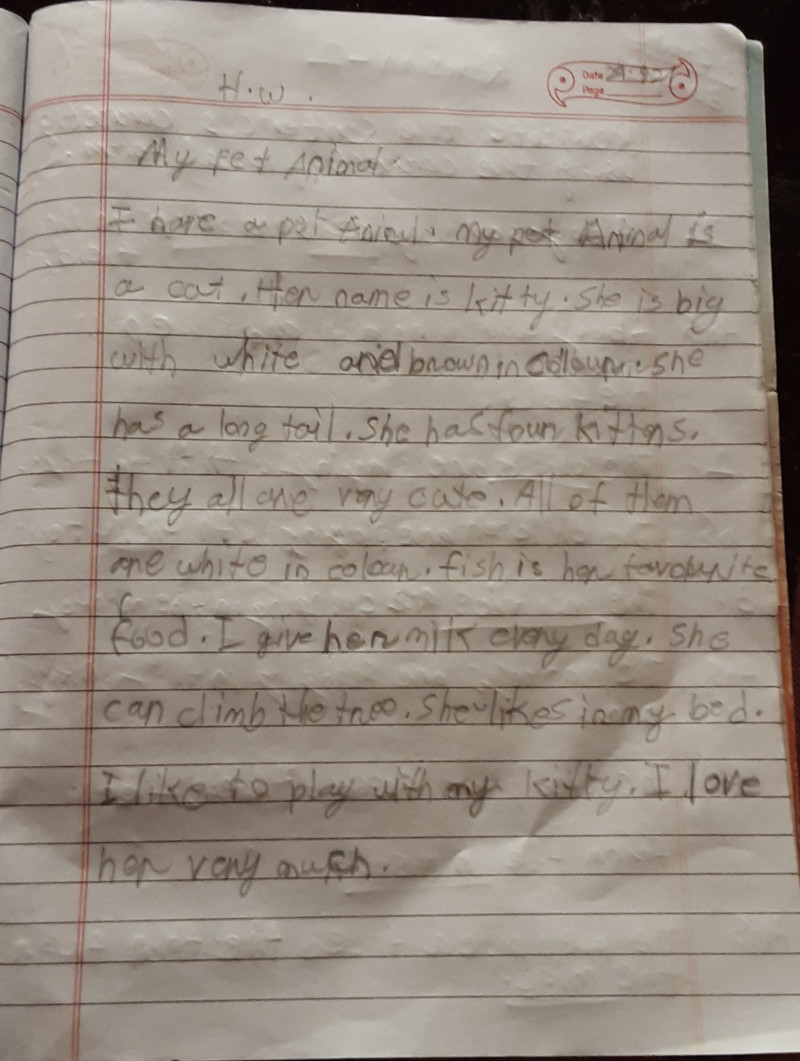 H.W.
Date
Page
My pet Animal.
I have a pet Animal. My pet Animal is
a cat. Her name is kitty. She is big
with white and brown in colour. she
has a long tail. She has four kittens.
they all are very cute. All of them
are white in colour. fish is her favourite
food. I give her milk every day. She
can climb the tree. She likes in my bed.
I like to play with my kitty. I love
her very much.